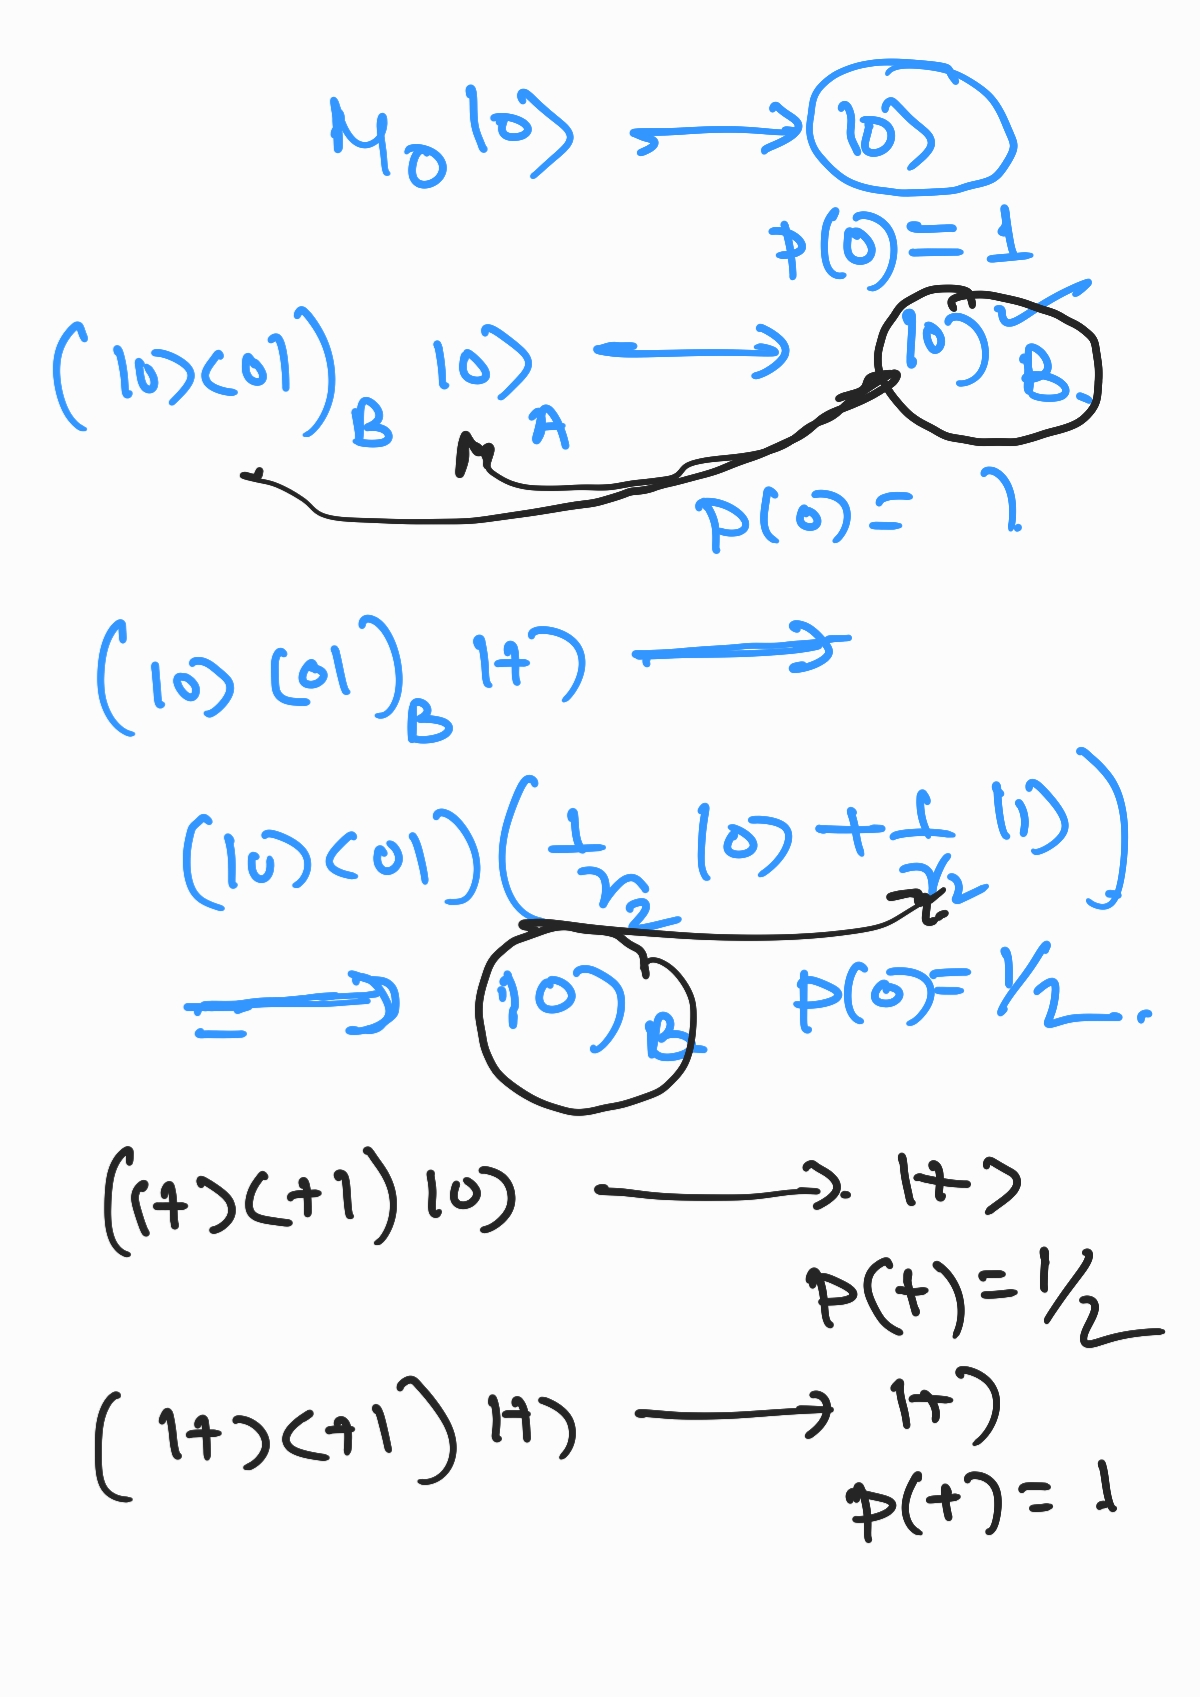 M₀ |0⟩ → |0⟩
p(0) = 1
(|0⟩⟨0|)_B |0⟩_A → |0⟩_B
p(0) = 1
(|0⟩⟨0|)_B |+⟩ →
(|0⟩⟨0|)(1/√2 |0⟩ + 1/√2 |1⟩)
⇒ |0⟩_B p(0) = 1/2.
(|+⟩⟨+|) |0⟩ → |+⟩
p(+) = 1/2
(|+⟩⟨+|) |+⟩ → |+⟩
p(+) = 1